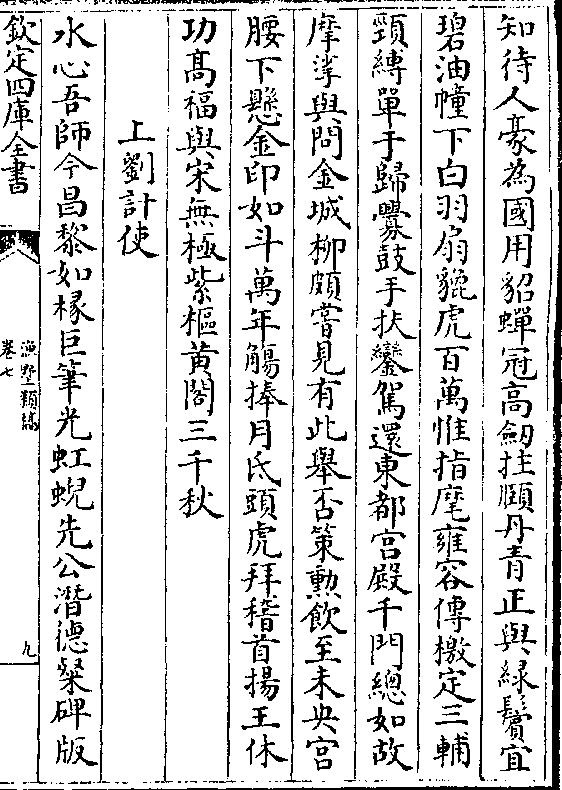 知待人豪為國用貂蟬冠高劒拄頤丹青正與緑鬢宜
碧油幢下白羽扇貔虎百萬惟指麾雍容傳檄定三輔
頸縛單于歸釁鼓手扶鑾駕還東都宮殿千門總如故
摩挲與問金城柳頗嘗見有此舉否策勲飲至未央宮
腰下懸金印如斗萬年觴捧月氐頭虎拜稽首揚王休
功髙福與宋無極紫樞黃閣三千秋
上劉計使
水心吾師今昌黎如椽巨筆光虹蜺先公潛德粲碑版
欽定四庫全書
漁墅類稿
卷七
九